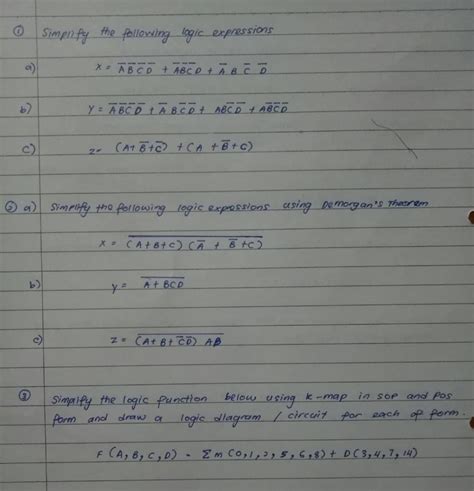 ① Simplify the following logic expressions
a) X = A̅B̅C̅D̅ + A̅B̅C̅D + A̅ B C̅ D̅
b) Y = A̅B̅C̅D̅ + A̅ B C̅D̅ + ABC̅D̅ + AB̅C̅D̅
c) Z = (A+B̅+C̅) + (A + B̅+C)
② a) Simplify the following logic expressions using DeMorgan's Theorem
X = \overline{(A+B+C) (A̅ + B̅+C)}
b) Y = \overline{A + BCD}
c) Z = \overline{(A+B+C̅D̅) AB}
③ Simplify the logic function below using K-map in SOP and POS
form and draw a logic diagram / circuit for each of form.
F (A, B, C, D) = Σm (0,1,2,5,6,8) + D (3,4,7,14)